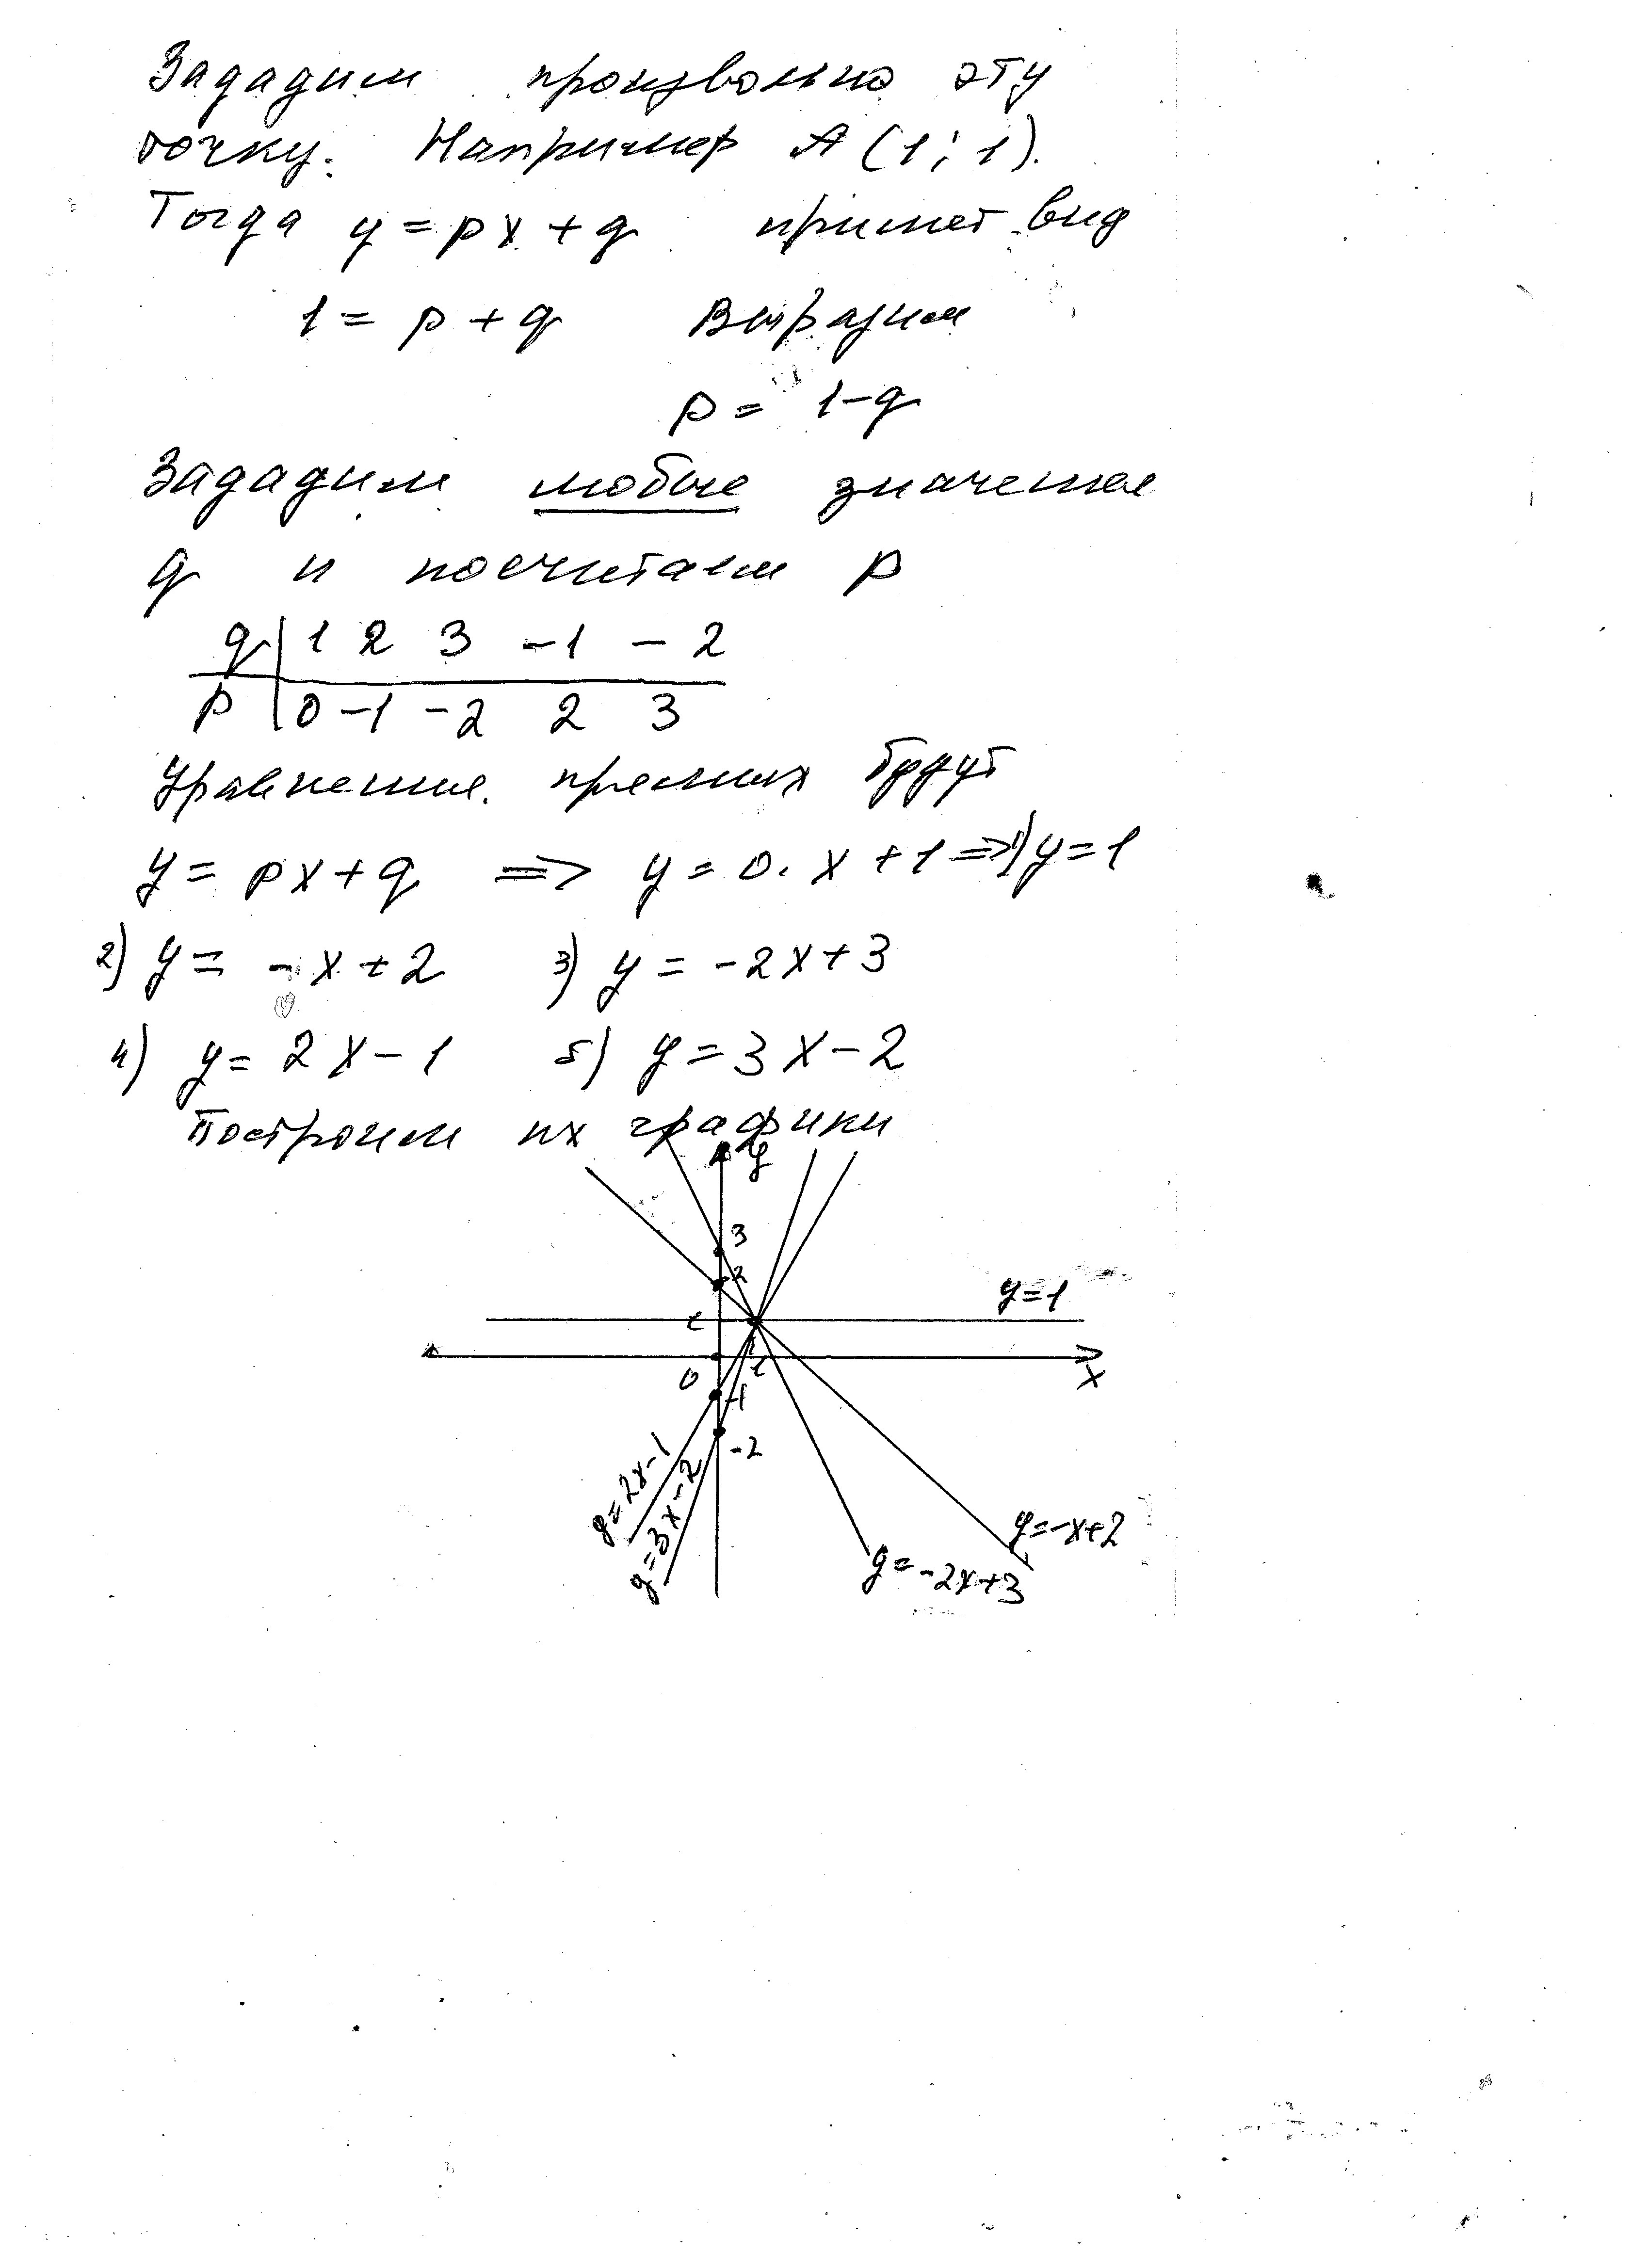 Зададим произвольно эту
точку. Например A(1; 1).
Тогда y = px + q примет вид
1 = p + q Выразим
p = 1-q
Зададим любые значения
q и посчитаем p
q 1 2 3 -1 -2
p 0 -1 -2 2 3
Уравнения прямых будут
y = px + q => y = 0. x + 1 => 1) y = 1
2) y = -x + 2 3) y = -2x + 3
4) y = 2x - 1 5) y = 3x - 2
Построим их графики
y
3
2
y = 1
1
0 1 x
-1
-2
y = 2x-1
y = 3x-2
y = -x+2
y = -2x+3